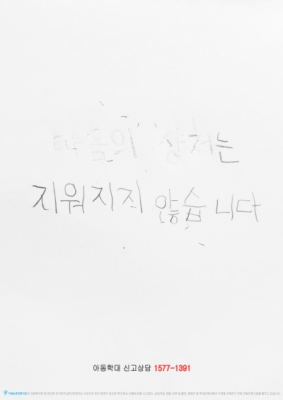 마음의 상처는
지워지지 않습니다
아동학대 신고상담 1577-1391